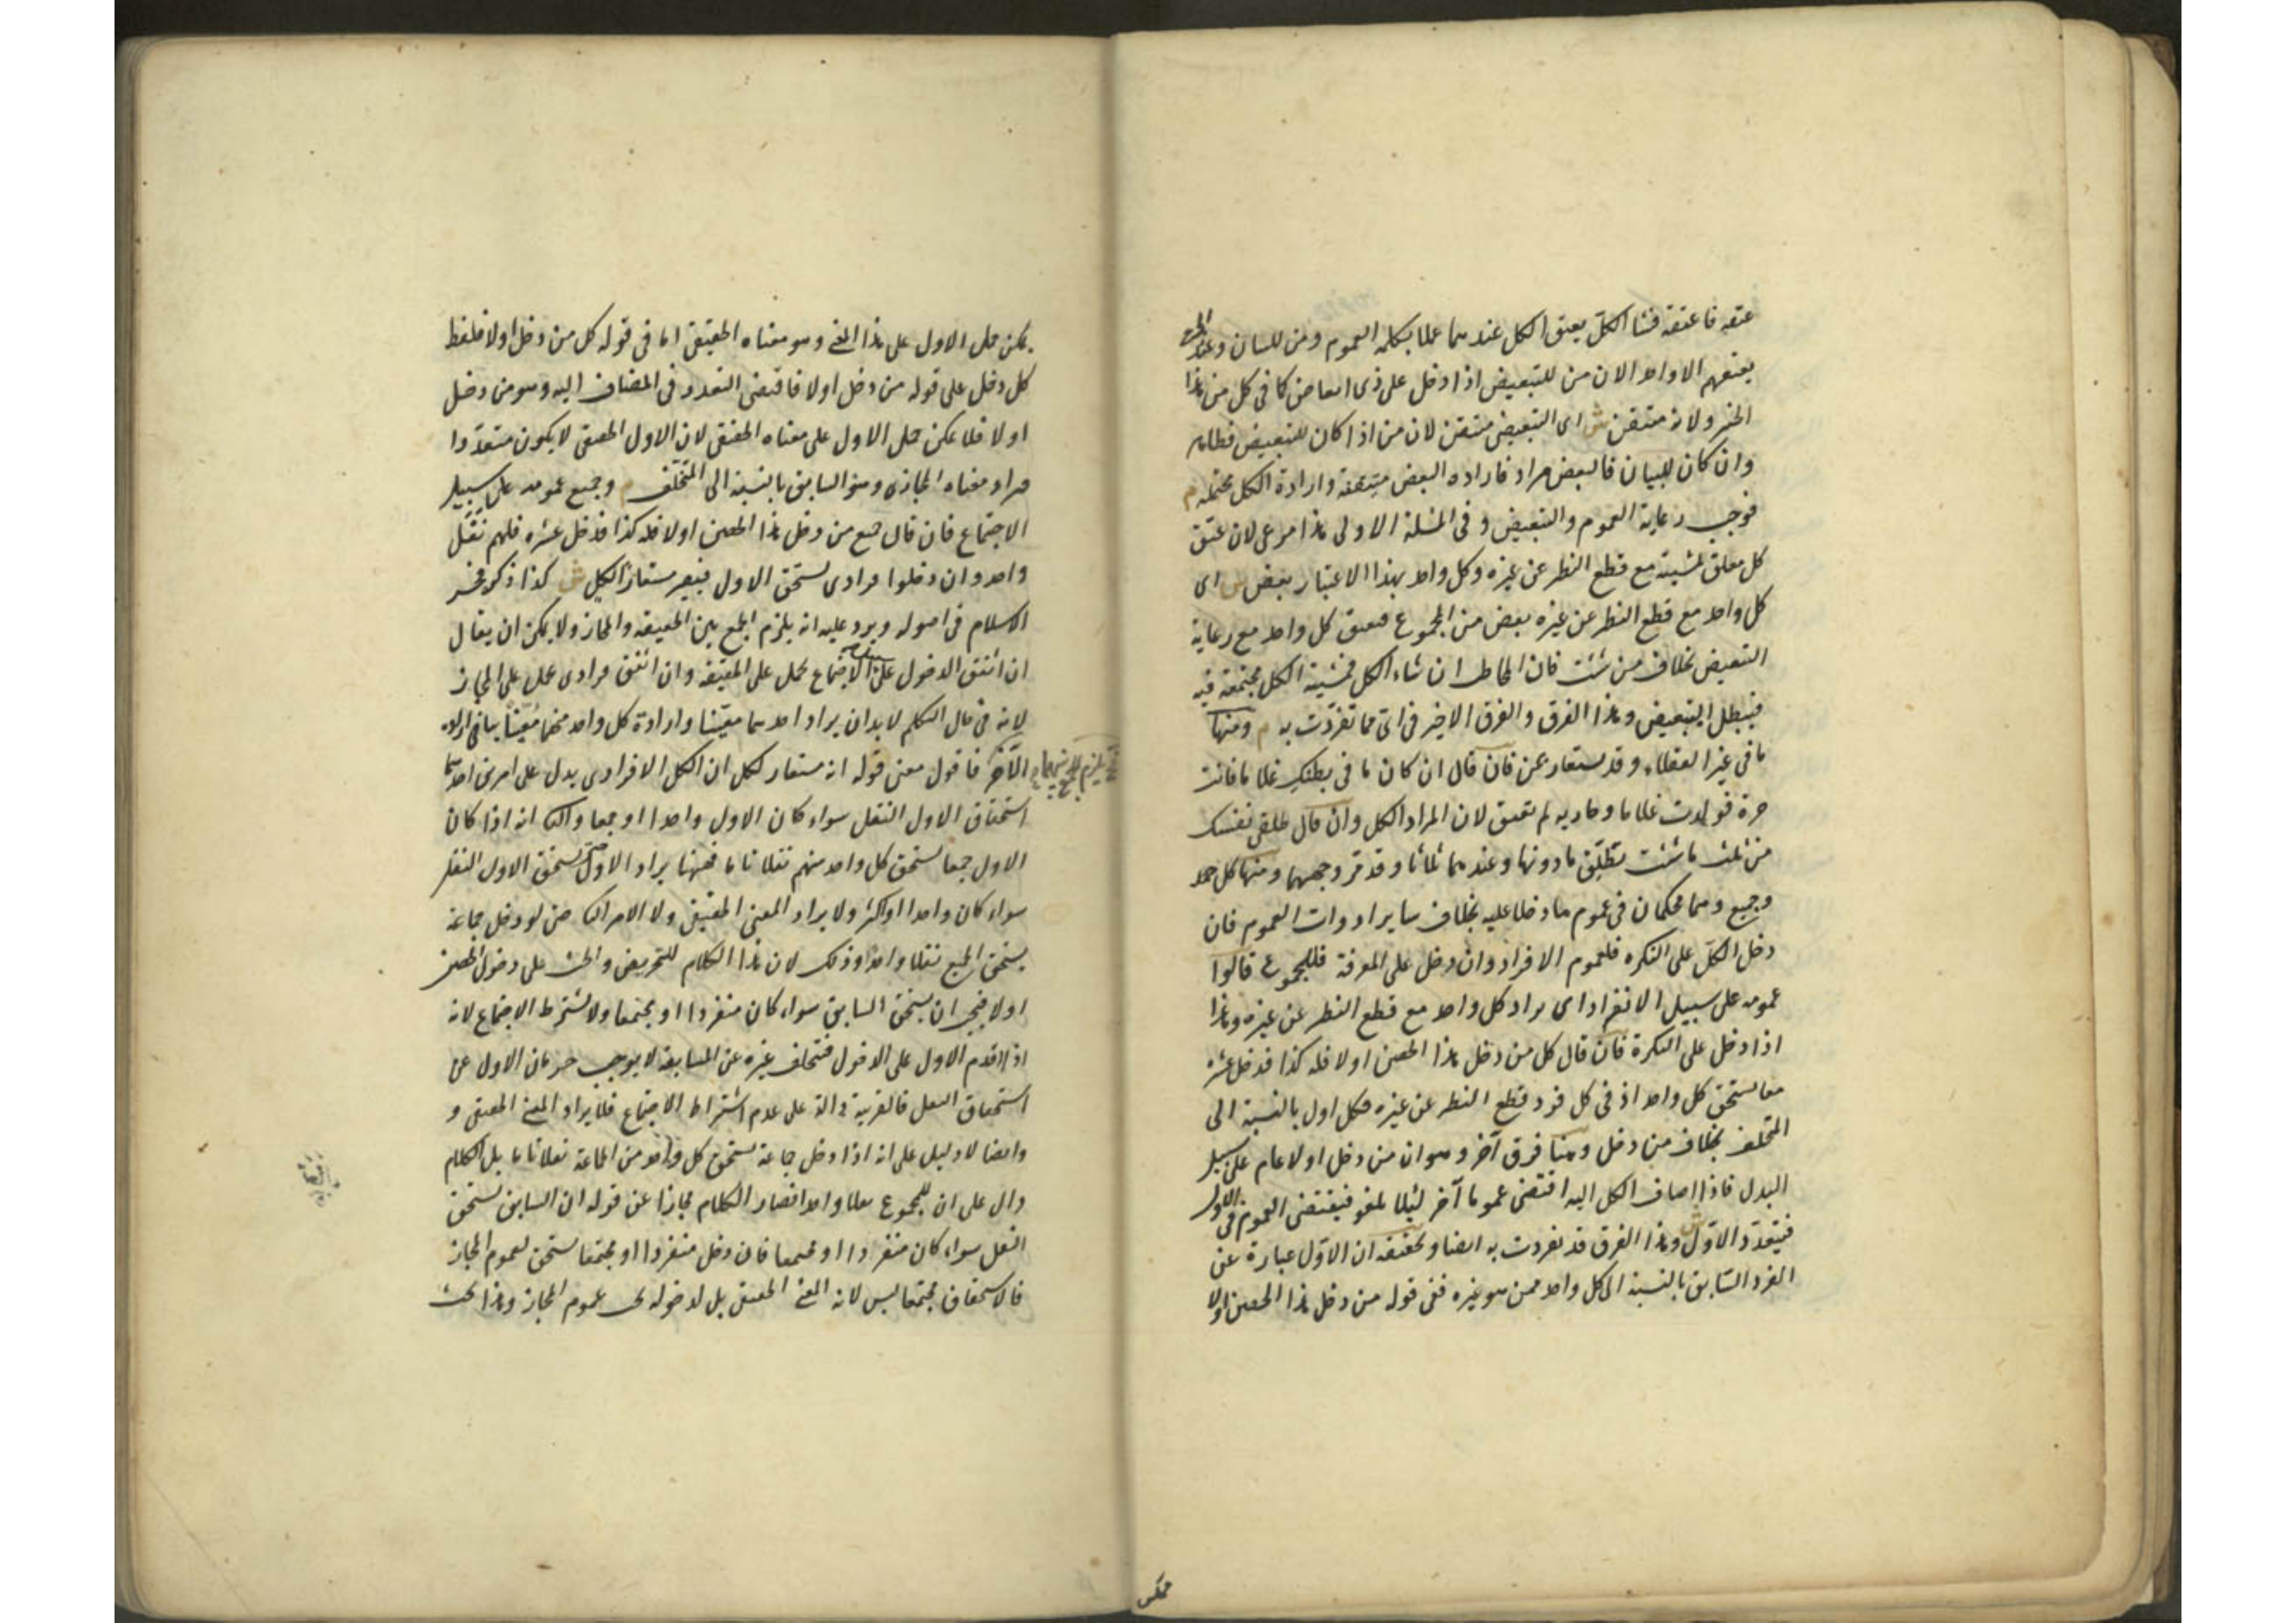 عتقه فاعتقه فشا الكل يعتق الكل عندهما عملا بكلمه العموم ومن للبيان وعند ابى ح
يعتقهم الا واحدا لان من للتبعيض اذا دخل على ذى ابعاض كما فى كل من هذا
الخبز ولانه متيقن ش اى التبعيض متيقن لان من اذا كان للتبعيض فظاهر
وان كان للبيان فالبعض مراد فارادة البعض متيقنة وارادة الكل محتملة م
فوجب رعاية العموم والتبعيض و فى المسئلة الاولى هذا مرعى لان عتق
كل معلق بمشيته مع قطع النظر عن غيره وكل واحد بهذا الاعتبار بعض ش اى
كل واحد مع قطع النظر عن غيره بعض من المجموع فيعتق كل واحد مع رعاية
التبعيض بخلاف من شئت فان المخاطب ان شاء الكل فمشية الكل مجتمعة فيه
فيبطل التبعيض وهذا الفرق والفرق الاخير فى اى مما تفردت به م ومنها
ما فى غير العقلاء وقد يستعار لمن فان قال ان كان ما فى بطنك غلاما فانت
حرة فولدت غلاما وجاريه لم تعتق لان المراد الكل وان قال طلقى نفسك
من ثلث ما شئت تطلق ما دونها وعندهما ثلاثا وقد مر وجههما ومنها كل
وجميع وهما محكمان فى عموم ما دخلا عليه بخلاف ساير ادوات العموم فان
دخل الكل على النكره فلعموم الافراد وان دخل على المعرفة فللمجموع قالوا
عمومه على سبيل الانفراد اى يراد كل واحد مع قطع النظر عن غيره وهذا
اذا دخل على النكرة فان قال كل من دخل هذا الحصن اولا فله كذا فدخل عشرة
معا يستحق كل واحد اذ فى كل فرد قطع النظر عن غيره فكل اول بالنسبة الى
المتخلف بخلاف من دخل وهنا فرق آخر وهو ان من دخل اولا عام على سبيل
البدل فاذا اضاف الكل اليه اقتضى عموما آخر لئلا يلغو فيقتضى العموم فى الاول
فيتعدد الاول ش وهذا الفرق قد تفردت به ايضا وتحقيقه ان الاول عبارة عن
الفرد السابق بالنسبة الى كل واحد ممن هو غيره ففى قوله من دخل هذا الحصن اولا
يمكن
يمكن حمل الاول على هذا المعنى وهو معناه الحقيقى اما فى قوله كل من دخل اولا فلفظ
كل دخل على قوله من دخل اولا فاقتضى التعدد فى المضاف اليه وهو من دخل
اولا فلا يمكن حمل الاول على معناه الحقيقى لان الاول الحقيقى لا يكون متعددا
فيراد معناه المجازى وهو السابق بالنسبة الى المتخلف م وجميع عمومه على سبيل
الاجتماع فان قال جميع من دخل هذا الحصن اولا فله كذا فدخل عشره فلهم نفل
واحد وان دخلوا فرادى يستحق الاول فيصير مستعارا لكل ش كذا ذكره فخر
الاسلام فى اصوله ويرد عليه انه يلزم الجمع بين الحقيقه والمجاز ولا يمكن ان يقال
ان اتفق الدخول على سبيل الاجتماع يحمل على الحقيقه وان اتفق فرادى يحمل على المجاز
لانه فى حال التكلم لا بد ان يراد احدهما معينا وارادة كل واحد منهما معينا ينافى ارادة
الآخر فاقول معنى قوله انه مستعار لكل ان الكل الافرادى يدل على امرين احدهما
استحقاق الاول النفل سواء كان الاول واحدا او جمعا والثانى انه اذا كان
الاول جمعا يستحق كل واحد منهم نفلا تاما فههنا يراد الاول حتى يستحق الاول النفل
سواء كان واحدا او اكثر ولا يراد المعنى الحقيقى ولا الامر الثانى حتى لو دخل جماعة
يستحق الجميع نفلا واحدا وذلك لان هذا الكلام للتحريض والحث على دخول الحصن
اولا فيجب ان يستحق السابق سواء كان منفردا او مجتمعا ولا يشترط الاجتماع لانه
اذا اقدم الاول على الدخول فتخلف غيره عن المسابقة لا يوجب حرمان الاول عن
استحقاق النفل فالقرينة دالة على عدم اشتراط الاجتماع فلا يراد المعنى الحقيقى و
وايضا لا دليل على انه اذا دخل جماعة يستحق كل واحد من الجماعة نفلا تاما بل الكلام
دال على ان للمجموع نفلا واحدا فصار الكلام مجازا عن قوله ان السابق يستحق
النفل سواء كان منفردا او مجتمعا فان دخل منفردا او مجتمعا يستحق لعموم المجاز
فالاستحقاق مجتمعا ليس لانه المعنى الحقيقى بل لدخوله تحت عموم المجاز وهذا بحث